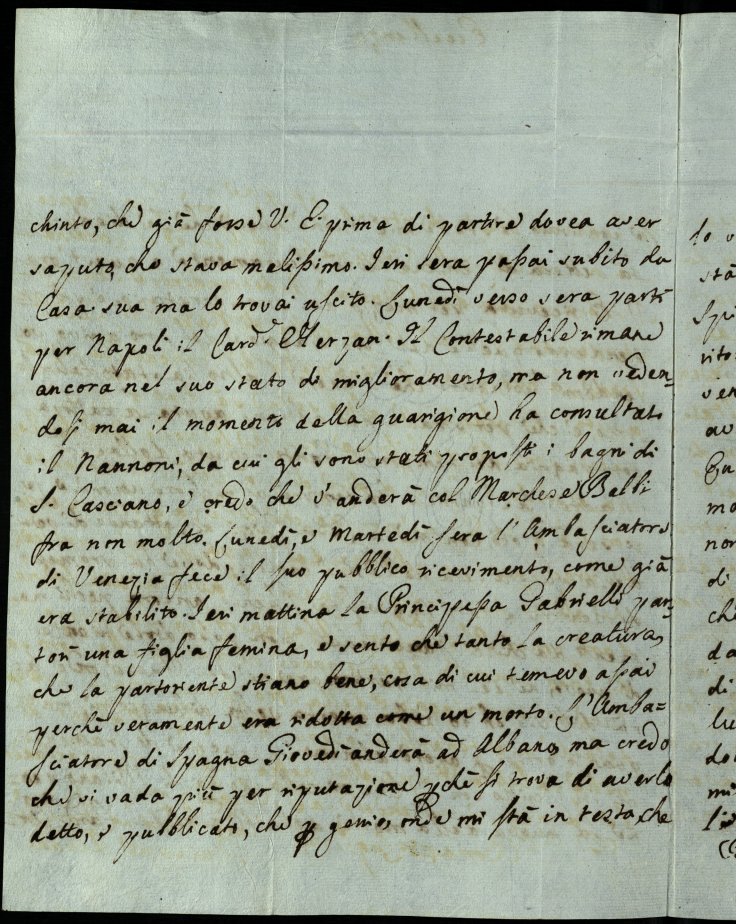 chinto, che già forse V. E. prima di partire dovea aver
saputo, che stava malissimo. Ieri sera passai subito da
Casa sua ma lo trovai uscito. Lunedì verso sera partì
per Napoli il Card.e Herzan. Il Contestabile rimane
ancora nel suo stato di miglioramento, ma non veden=
dosi mai il momento della guarigione ha consultato
il Nannoni, da cui gli sono stati proposti i bagni di
S. Casciano, e credo che v'anderà col Marchese Belli
fra non molto. Lunedì, e Martedì sera l'Ambasciatore
di Venezia fece il suo pubblico ricevimento, come già
era stabilito. Ieri mattina la Principessa Gabrielli par=
torì una figlia femina, e sento che tanto la creatura,
che la partoriente stiano bene, cosa di cui temevo assai
perchè veramente era ridotta come un morto. L'Amba=
sciatore di Spagna Giovedì anderà ad Albano, ma credo
che vi vada più per riputazione pchè si trova di averlo
detto, e pubblicato, che p genio, onde mi stà in testa, che